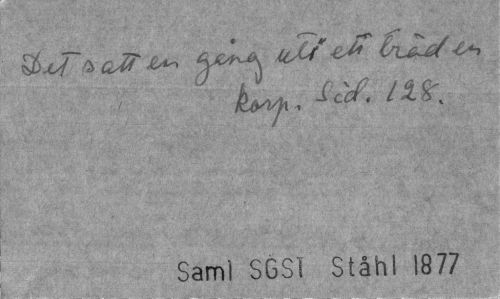 Det satt en gång uti ett träd en
korp. Sid. 128.
Saml SGST Ståhl 1877